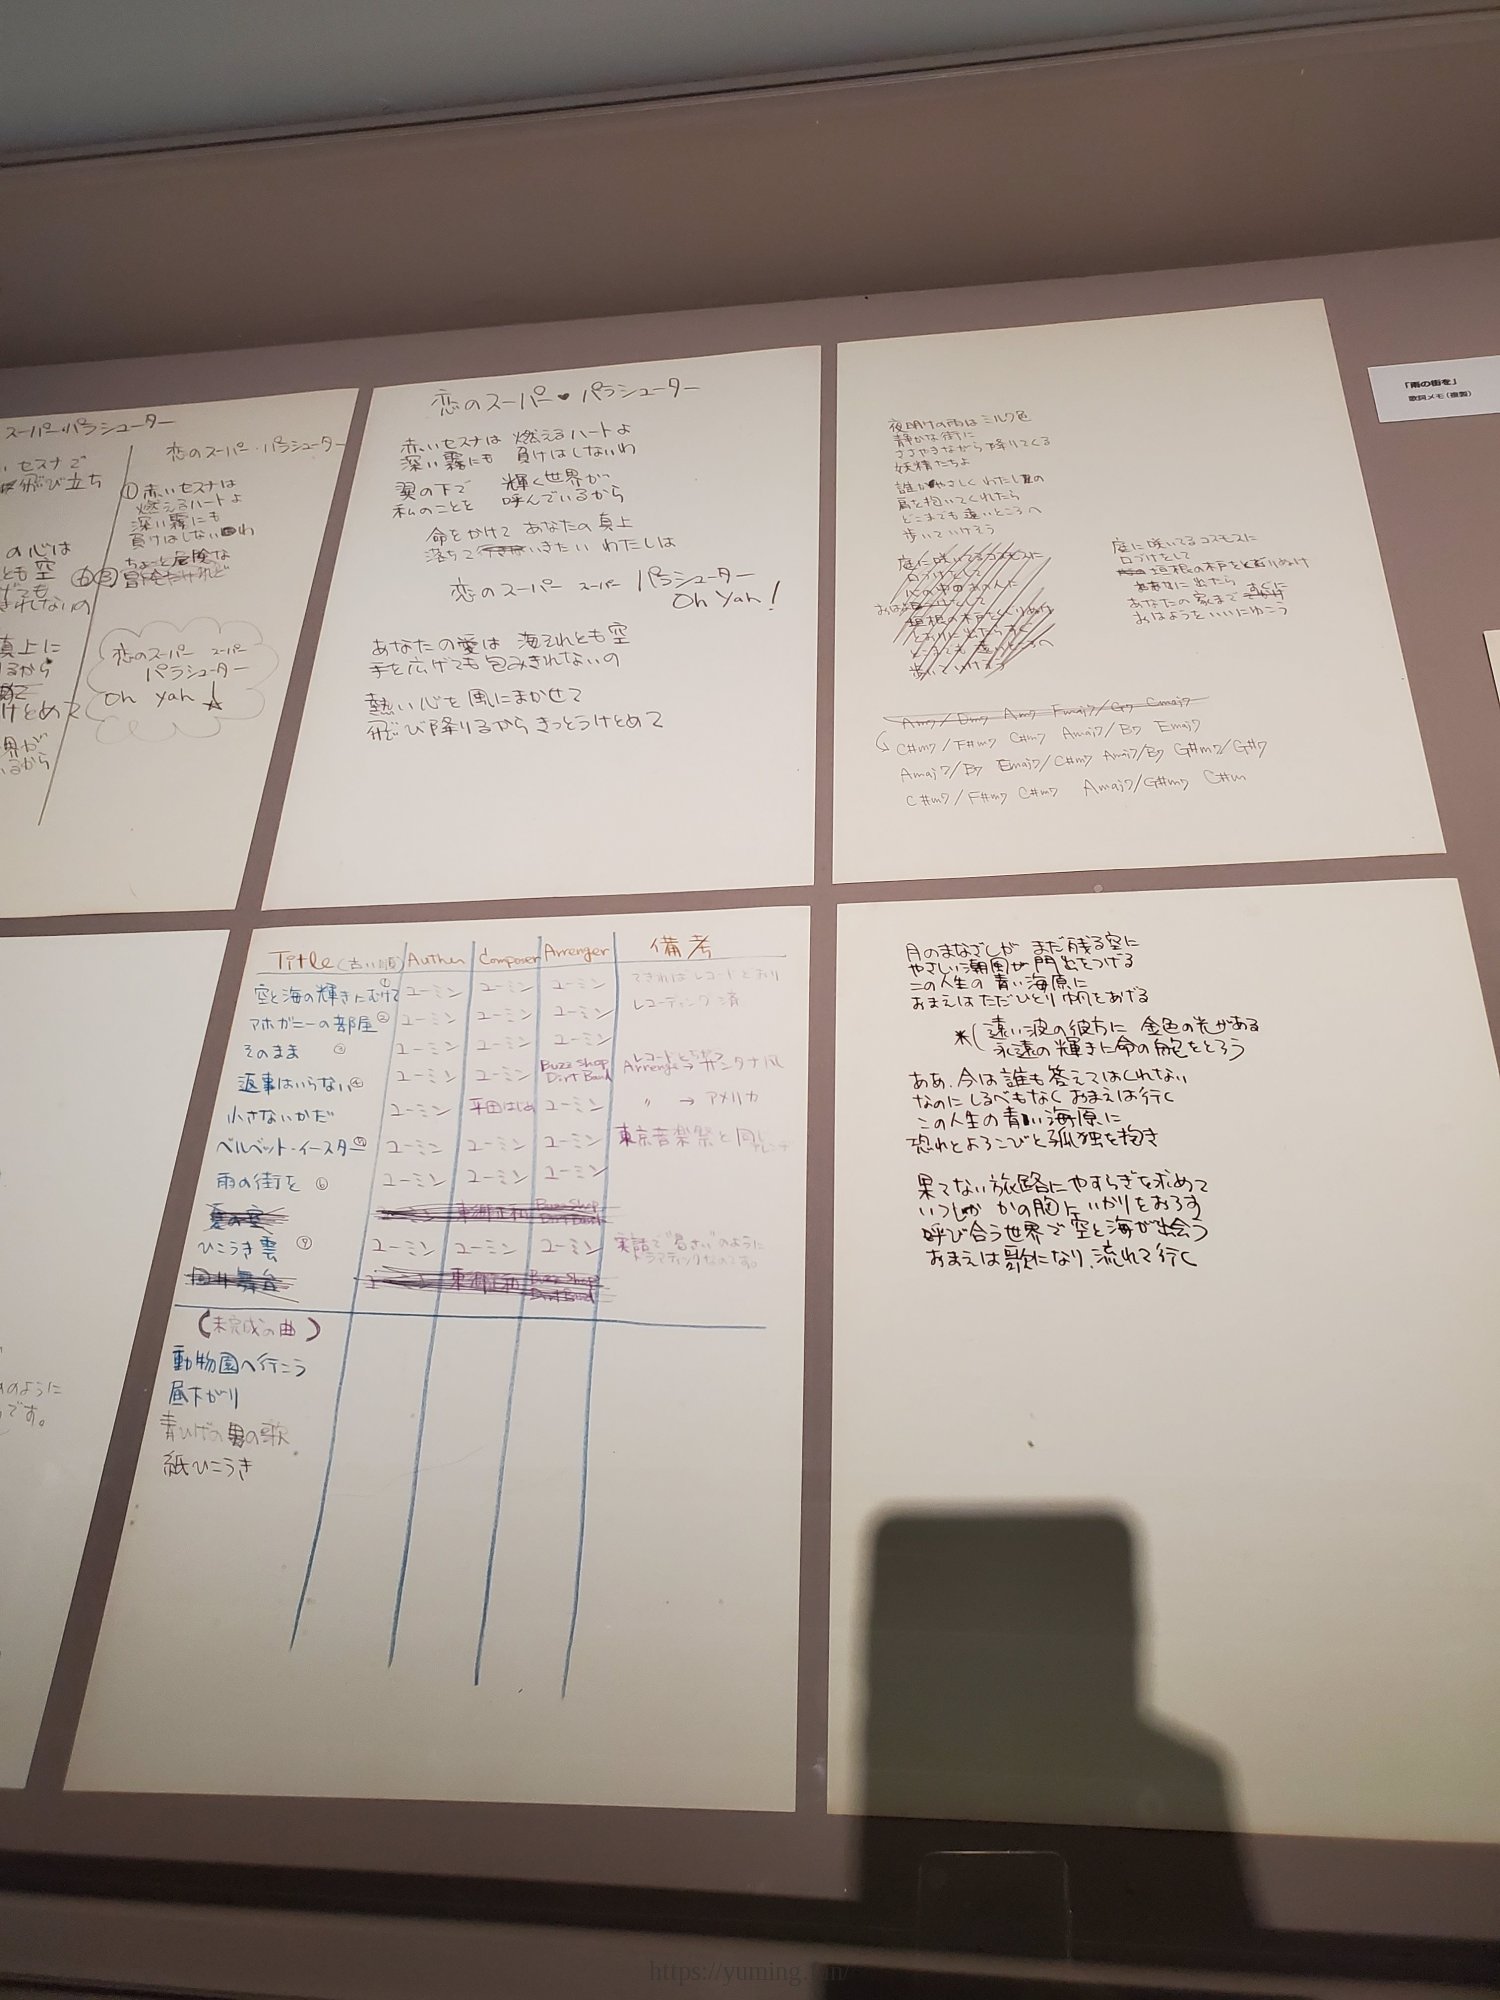 スーパー・パラシューター
セスナで
飛び立ち
の心は
とも空
げても
きれないの
真上に
るから
けとめて
界が
いるから
恋のスーパー・パラシューター
①赤いセスナは
燃えるハートよ
深い霧にも
負けはしないわ
ちょっと危険な
冒険だけれど
恋のスーパー スーパー
パラシューター
Oh Yah!
恋のスーパー♥パラシューター
赤いセスナは 燃えるハートよ
深い霧にも 負けはしないわ
翼の下で 輝く世界が
私のことを 呼んでいるから
命をかけて あなたの真上
落ちていきたい わたしは
恋のスーパー スーパー パラシューター
Oh Yah!
あなたの愛は 海それとも空
手を広げても包みきれないの
熱い心を 風にまかせて
飛び降りるから きっとうけとめて
夜明けの雨はミルク色
静かな街に
ささやきながら降りてくる
妖精たちよ
誰かやさしくわたしの
肩を抱いてくれたら
どこまでも遠いところへ
歩いていけそう
庭に咲いてるコスモスに
口づけをして
垣根の木戸をくぐりぬけ
歩いていけそう
庭に咲いてるコスモスに
口づけをして
垣根の木戸をくぐりぬけ
おもてに出たら
あなたの家まですぐに
おはようをいいにゆこう
Am7/Dm7 Am7 Fmaj7/G7 Cmaj7
C#m7/F#m7 C#m7 Amaj7/B7 Emaj7
Amaj7/B7 Emaj7/C#m7 Amaj7/B7 G#m7/G#7
C#m7/F#m7 C#m7 Amaj7/G#m7 C#m
「雨の街を」
歌詞メモ(複製)
Title(古い順) Author Composer Arrenger 備考
空と海の輝きにむけて① ユーミン ユーミン ユーミン できればレコードどおり
アホガニーの部屋② ユーミン ユーミン ユーミン レコーディング済
そのまま ③ ユーミン ユーミン ユーミン
返事はいらない④ ユーミン ユーミン Buzz Shop Dirt Band レコードとちがう Arrenge→サンタナ風
小さないかだ ユーミン 平田はじめ ユーミン 〃 →アメリカ
ベルベット・イースター⑤ ユーミン ユーミン ユーミン 東京音楽祭と同じアレンジ
雨の街を ⑥ ユーミン ユーミン ユーミン
夏の空 東郷正和 Buzz Shop Dirt Band
ひこうき雲 ⑦ ユーミン ユーミン ユーミン 実話で"鳥さい"のようにドラマティックなのです。
回り舞台 東郷正和 Buzz Shop Dirt Band
(未完成の曲)
動物園へ行こう
昼下がり
青ひげの男の歌
紙ひこうき
のように
です。
月のまなざしが まだ残る空に
やさしい潮風が 門出をつげる
この人生の 青い海原に
おまえは ただひとり 帆をあげる
*(遠い波の彼方に 金色の光がある
永遠の輝きに命の舵をとろう
ああ、今は誰も答えてはくれない
なのに しるべもなく おまえは行く
この人生の青い海原に
恐れとよろこびと孤独を抱き
果てない旅路にやすらぎを求めて
いつしか かの胸に いかりをおろす
呼び合う世界で空と海が出会う
おまえは歌になり、流れて行く